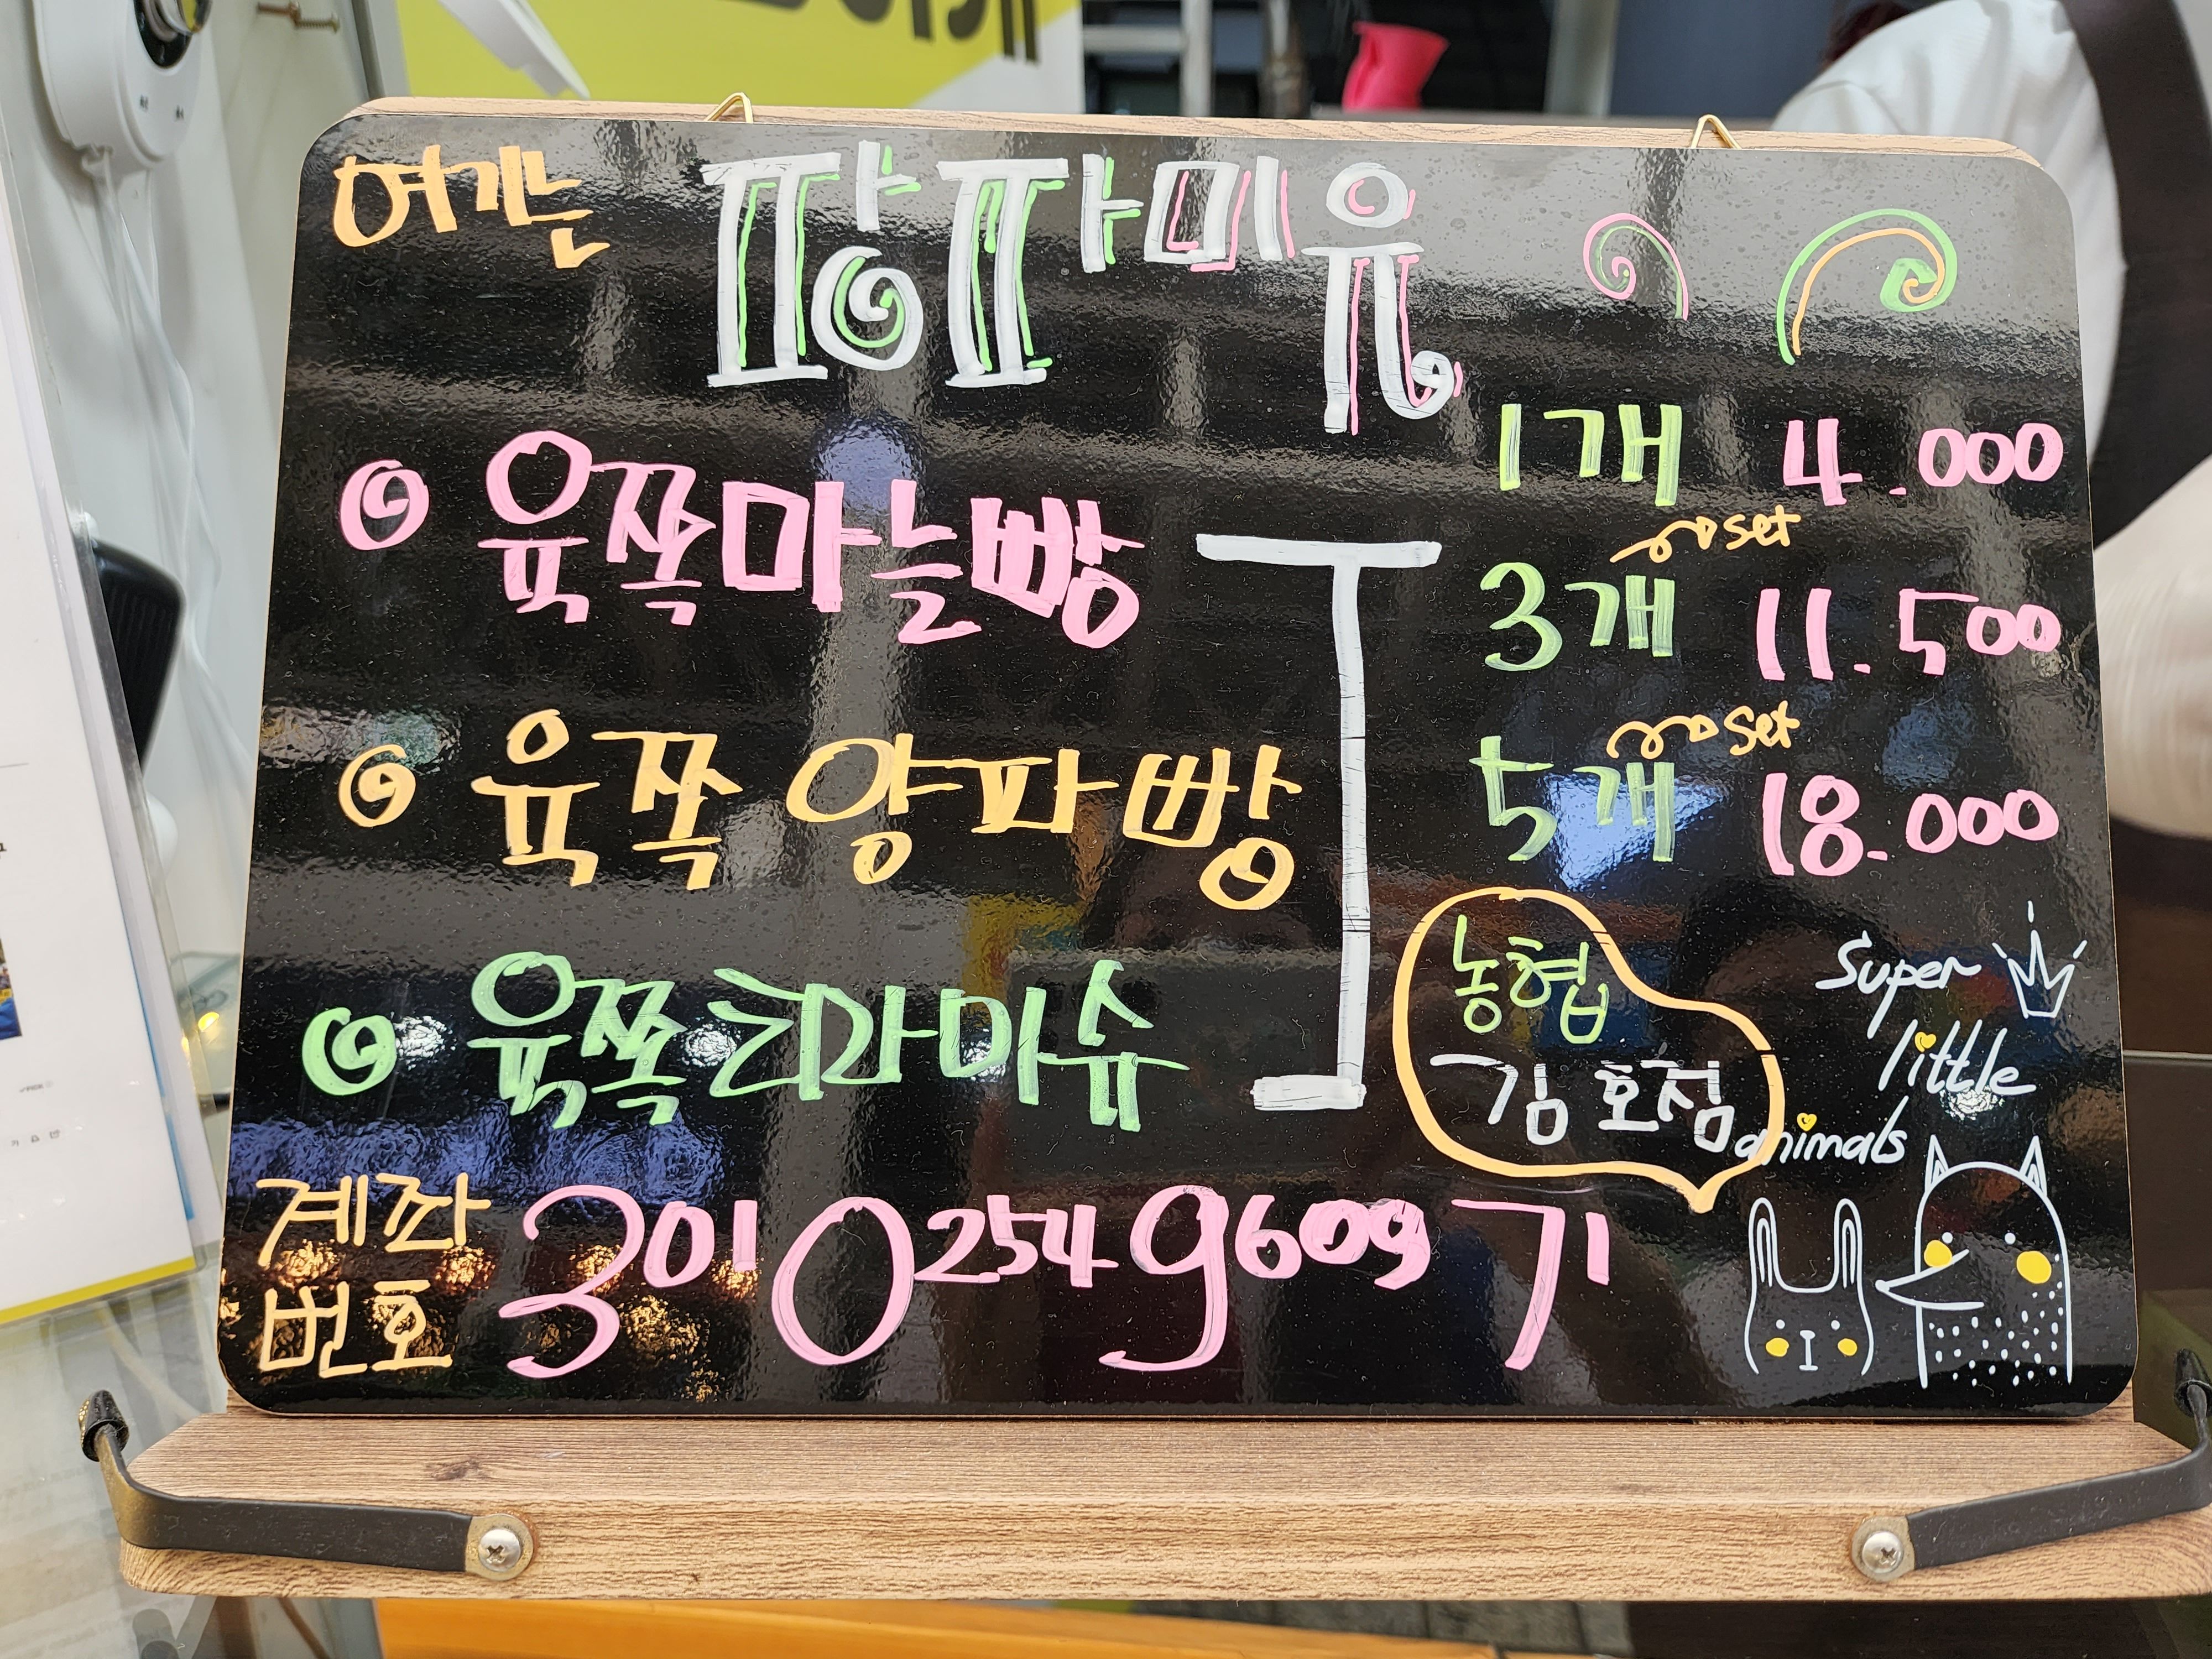 여기는 팡파미유
육쪽마늘빵
육쪽 양파빵
육쪽티라미슈
1개 4.000
3개 set 11.500
5개 set 18.000
농협
김호정
Super
little
animals
계좌
번호 3010254960971